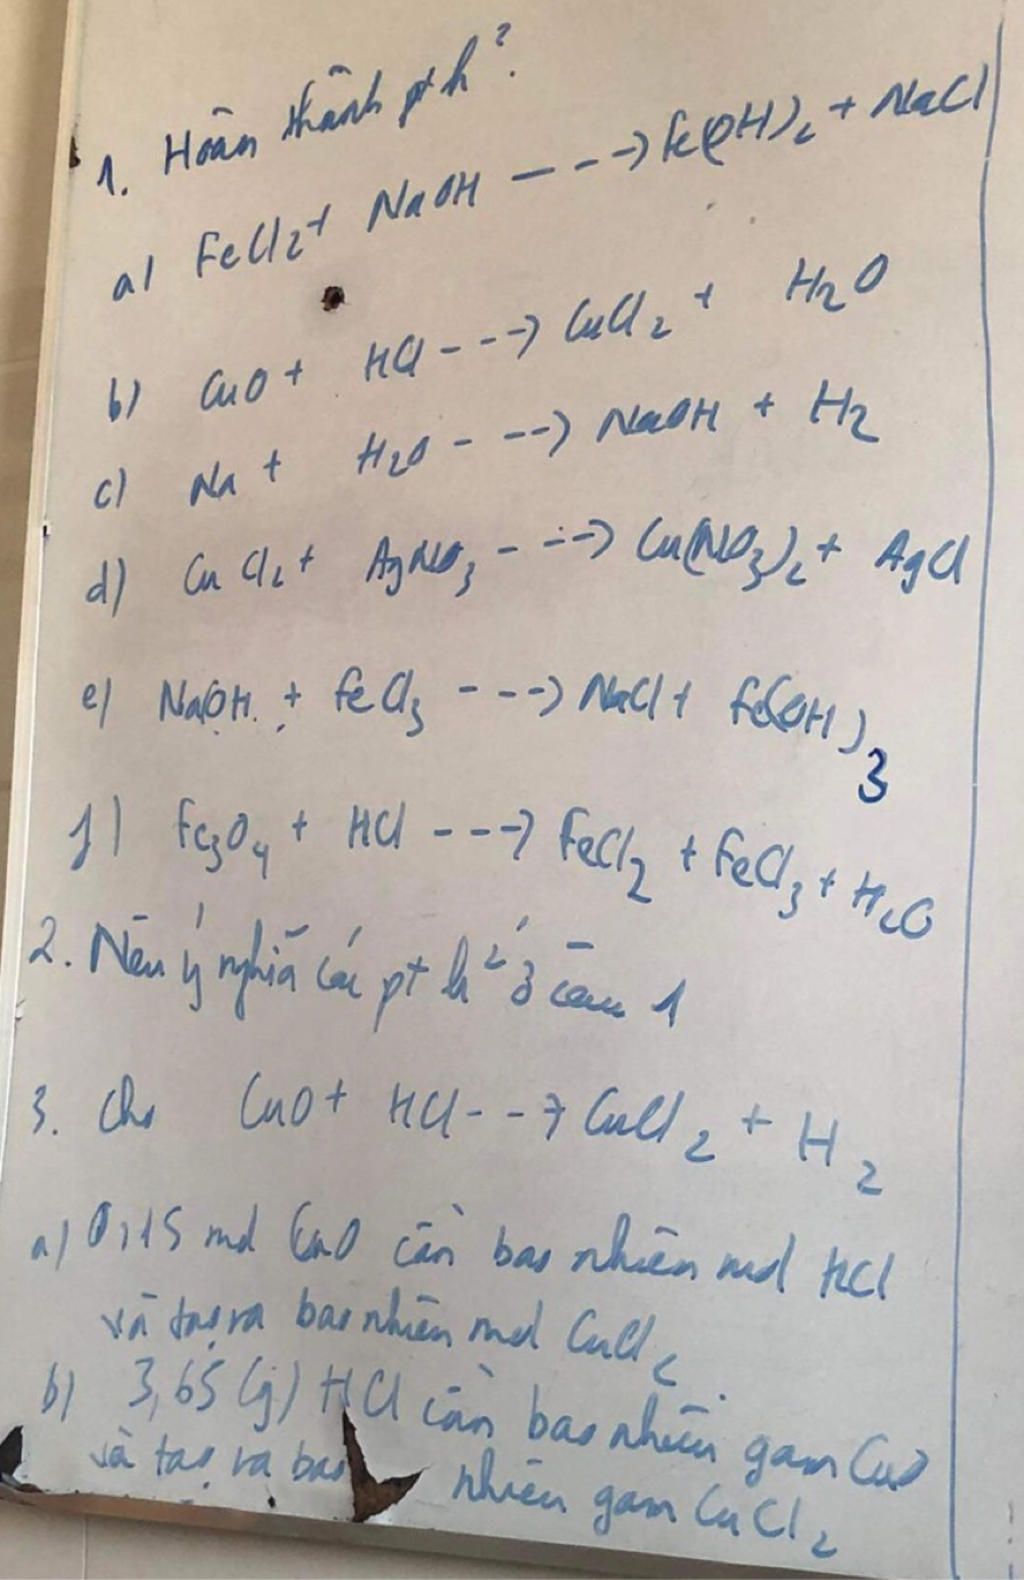 1. Hoàn thành pt h²:
a) FeCl₂ + NaOH ---> Fe(OH)₂ + NaCl
b) CuO + HCl ---> CuCl₂ + H₂O
c) Na + H₂O ---> NaOH + H₂
d) CuCl₂ + AgNO₃ ---> Cu(NO₃)₂ + AgCl
e) NaOH + FeCl₃ ---> NaCl + Fe(OH)₃
f) Fe₃O₄ + HCl ---> FeCl₂ + FeCl₃ + H₂O
2. Nêu ý nghĩa các pt h² ở câu 1
3. Cho CuO + HCl ---> CuCl₂ + H₂
a) 0,15 mol CuO cần bao nhiêu mol HCl
và tạo ra bao nhiêu mol CuCl₂
b) 3,65 (g) HCl cần bao nhiêu gam CuO
và tạo ra bao nhiêu gam CuCl₂